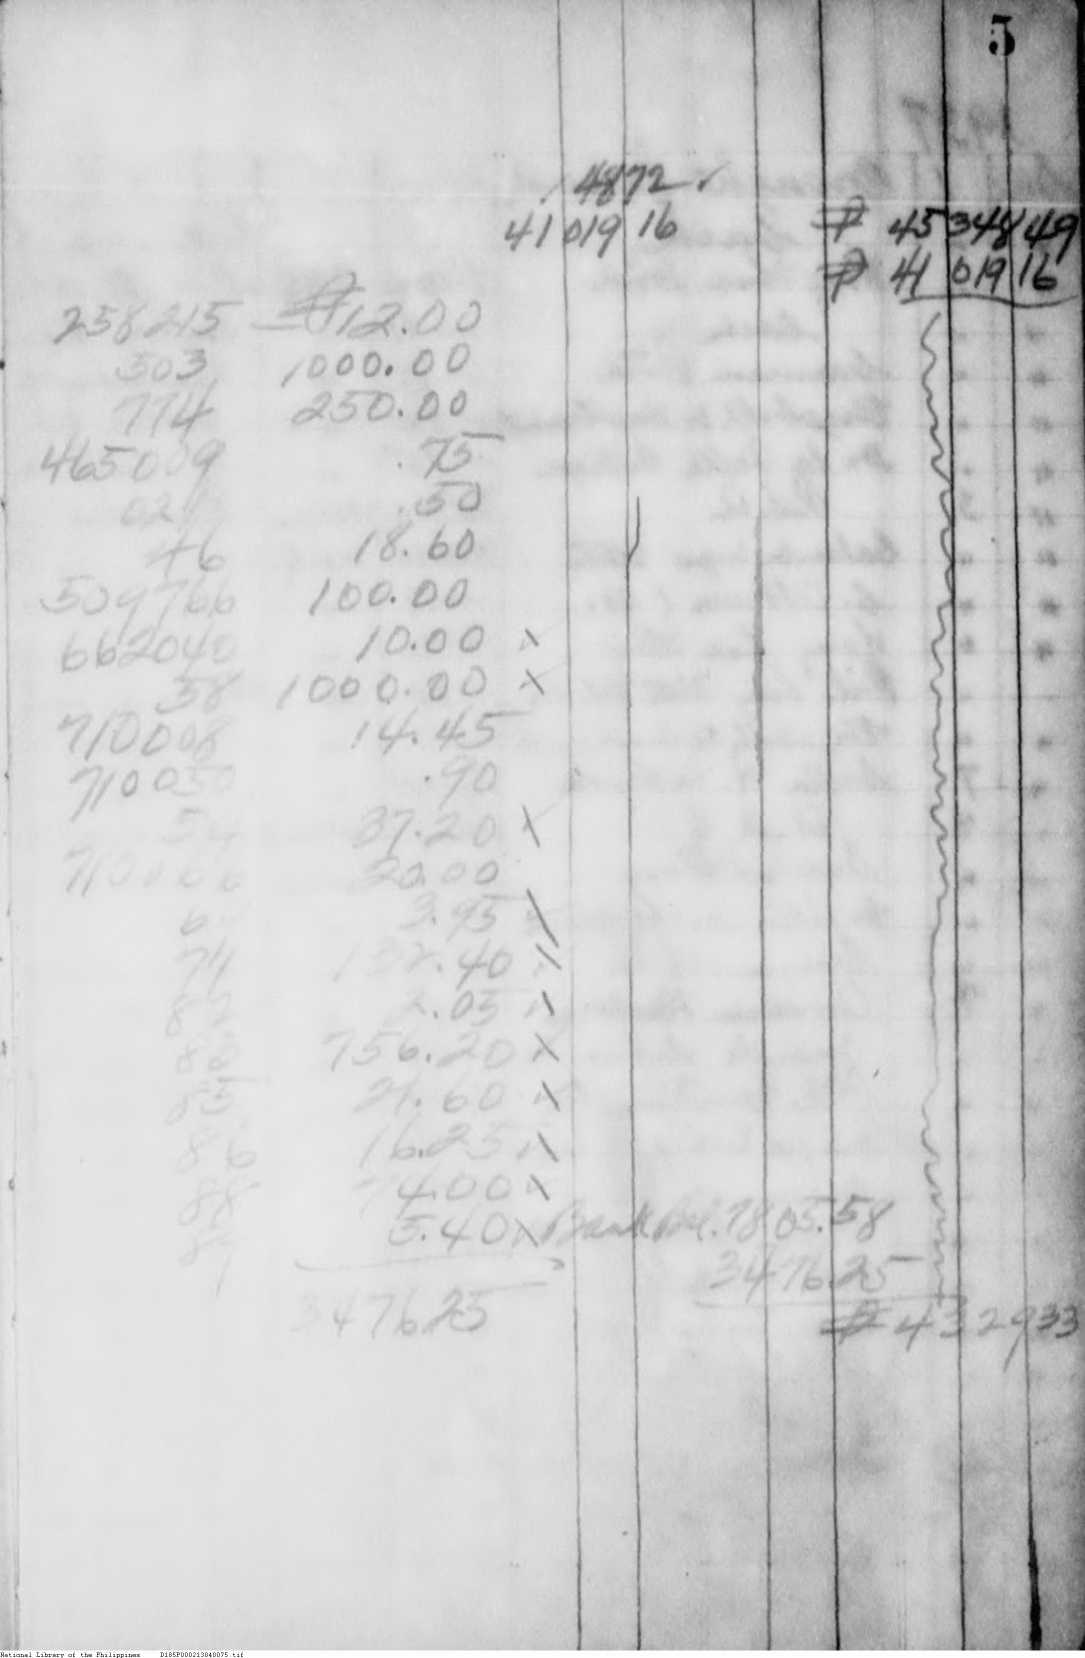 5
4872 ✓
41 019 16 ₱ 45 348 49
₱ 41 019 16
258215 ₱12.00
503 1000.00
774 250.00
465009 .75
.50
46 18.60
509766 100.00
662040 10.00 x
58 1000.00 x
710008 14.45
710050 .90
54 37.20 x
710066 20.00
3.95 x
74 132.40 x
82 2.05 x
83 756.20 x
85 21.60 x
86 16.25 x
88 74.00 x
5.40 x Bank Bal. 7805.58
3476.25
3476.25 ₱ 4329 33
National Library of the Philippines D185P000213040075.tif